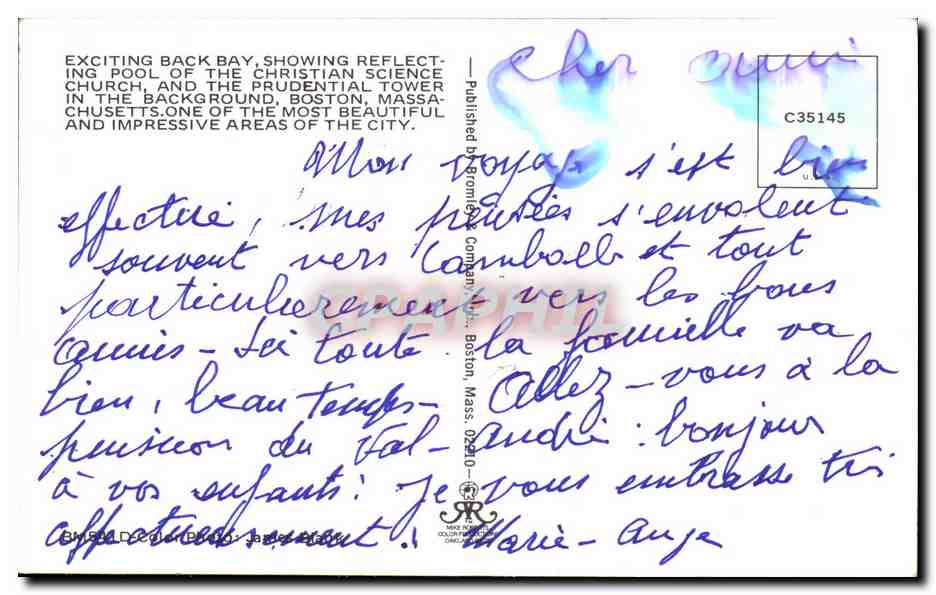 EXCITING BACK BAY, SHOWING REFLECT-
ING POOL OF THE CHRISTIAN SCIENCE
CHURCH, AND THE PRUDENTIAL TOWER
IN THE BACKGROUND, BOSTON, MASSA-
CHUSETTS. ONE OF THE MOST BEAUTIFUL
AND IMPRESSIVE AREAS OF THE CITY.
Cher
C35145
Mon voyage s'est bien
effectué, mes pensées s'envolent
souvent vers Lamballe et tout
particulièrement vers les bons
amis - Ici toute la famille va
bien, beau temps - Allez-vous à la
pension du Val-André : bonjour
à vos enfants : je vous embrasse très
affectueusement. Marie-Ange
Published by Bromley & Company, Boston, Mass. 02210
Color Photo: James Blank
MIKE ROBERTS
COLOR PRODUCTIONS
GRAPHIL